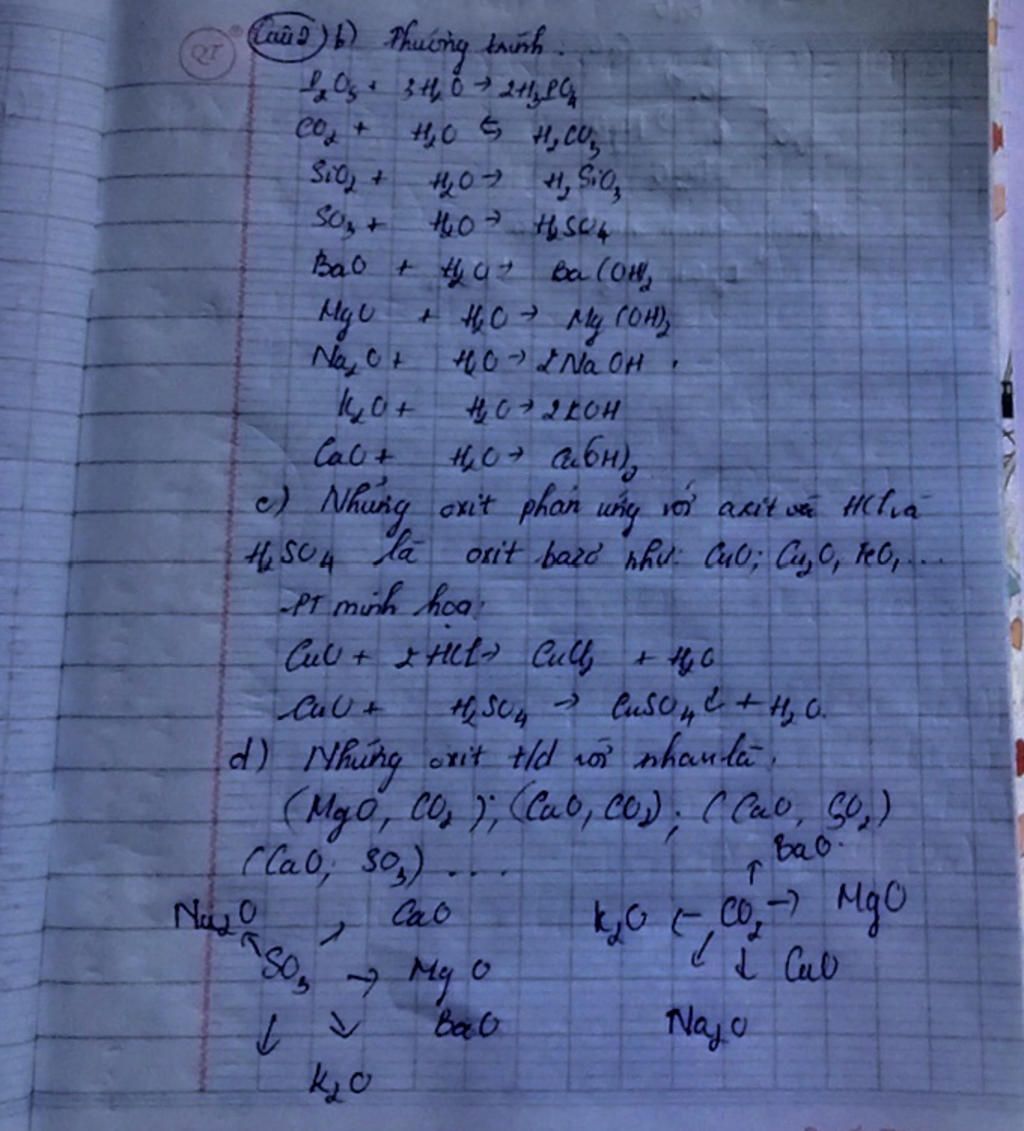 QT
Câu2) b) Phương trình.
P₂O₅ + 3H₂O → 2H₃PO₄
CO₂ + H₂O ⇆ H₂CO₃
SiO₂ + H₂O → H₂SiO₃
SO₃ + H₂O → H₂SO₄
BaO + H₂O → Ba(OH)₂
MgO + H₂O → Mg(OH)₂
Na₂O + H₂O → 2NaOH.
K₂O + H₂O → 2KOH
CaO + H₂O → Ca(OH)₂
c) Những oxit phản ứng với axit HCl và
H₂SO₄ là oxit bazơ như: CuO; Cu₂O, FeO,...
-PT minh họa:
CuO + 2HCl → CuCl₂ + H₂O
CuO + H₂SO₄ → CuSO₄ + H₂O.
d) Những oxit t/d với nhau là:
(MgO, CO₂); (CaO, CO₂); (CaO, SO₂)
(CaO; SO₃) ....
BaO.
Na₂O CaO K₂O ← CO₂ → MgO
SO₃ → MgO ↓ CaO
↓ ↘ BaO Na₂O
K₂O